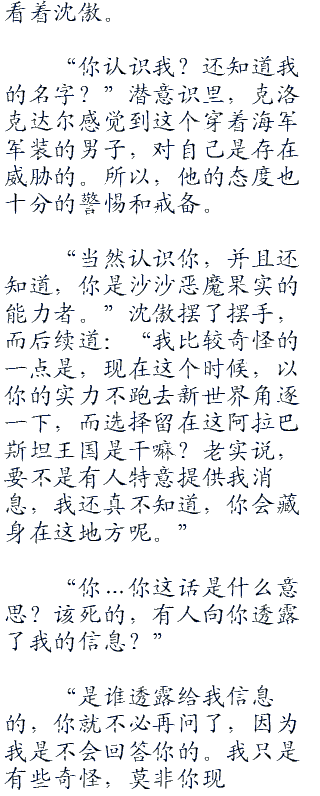 看着沈傲。
“你认识我？还知道我
的名字？”潜意识里，克洛
克达尔感觉到这个穿着海军
军装的男子，对自己是存在
威胁的。所以，他的态度也
十分的警惕和戒备。
“当然认识你，并且还
知道，你是沙沙恶魔果实的
能力者。”沈傲摆了摆手，
而后续道：“我比较奇怪的
一点是，现在这个时候，以
你的实力不跑去新世界角逐
一下，而选择留在这阿拉巴
斯坦王国是干嘛？老实说，
要不是有人特意提供我消
息，我还真不知道，你会藏
身在这地方呢。”
“你…你这话是什么意
思？该死的，有人向你透露
了我的信息？”
“是谁透露给我信息
的，你就不必再问了，因为
我是不会回答你的。我只是
有些奇怪，莫非你现